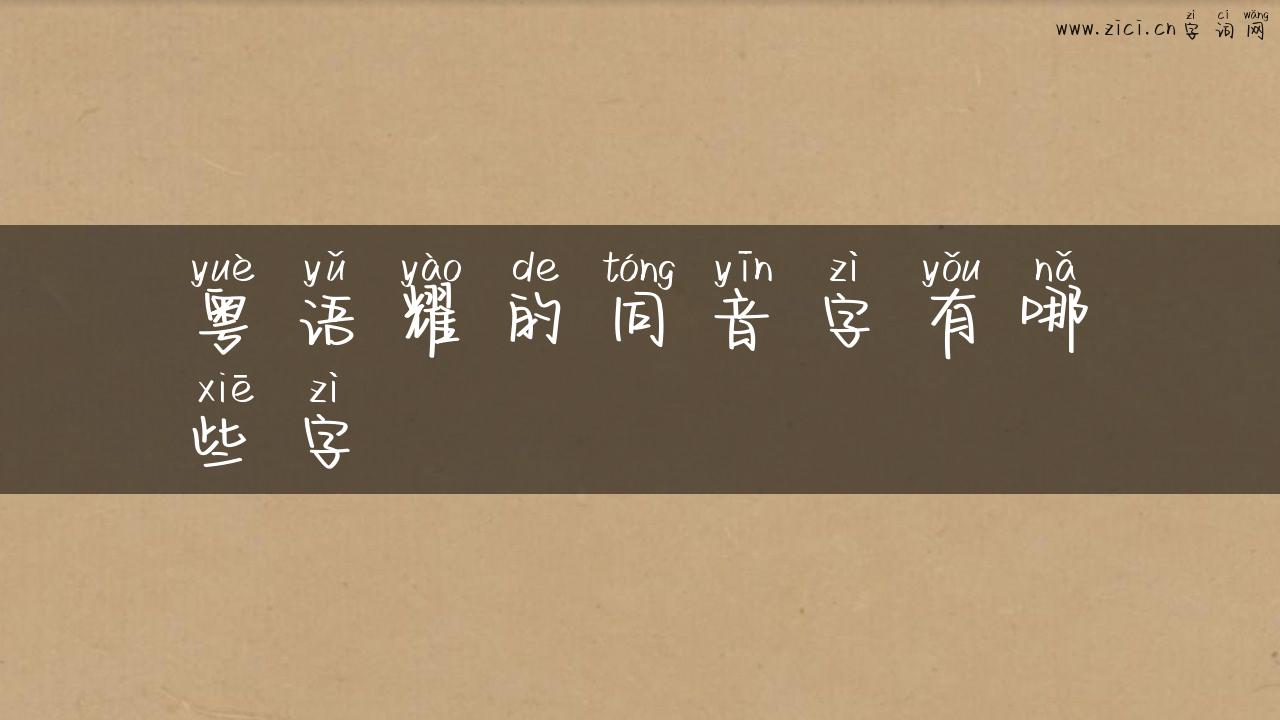 zì cí wǎng
www.zici.cn 字 词 网
yuè yǔ yào de tóng yīn zì yǒu nǎ
粤 语 耀 的 同 音 字 有 哪
xiē zì
些 字